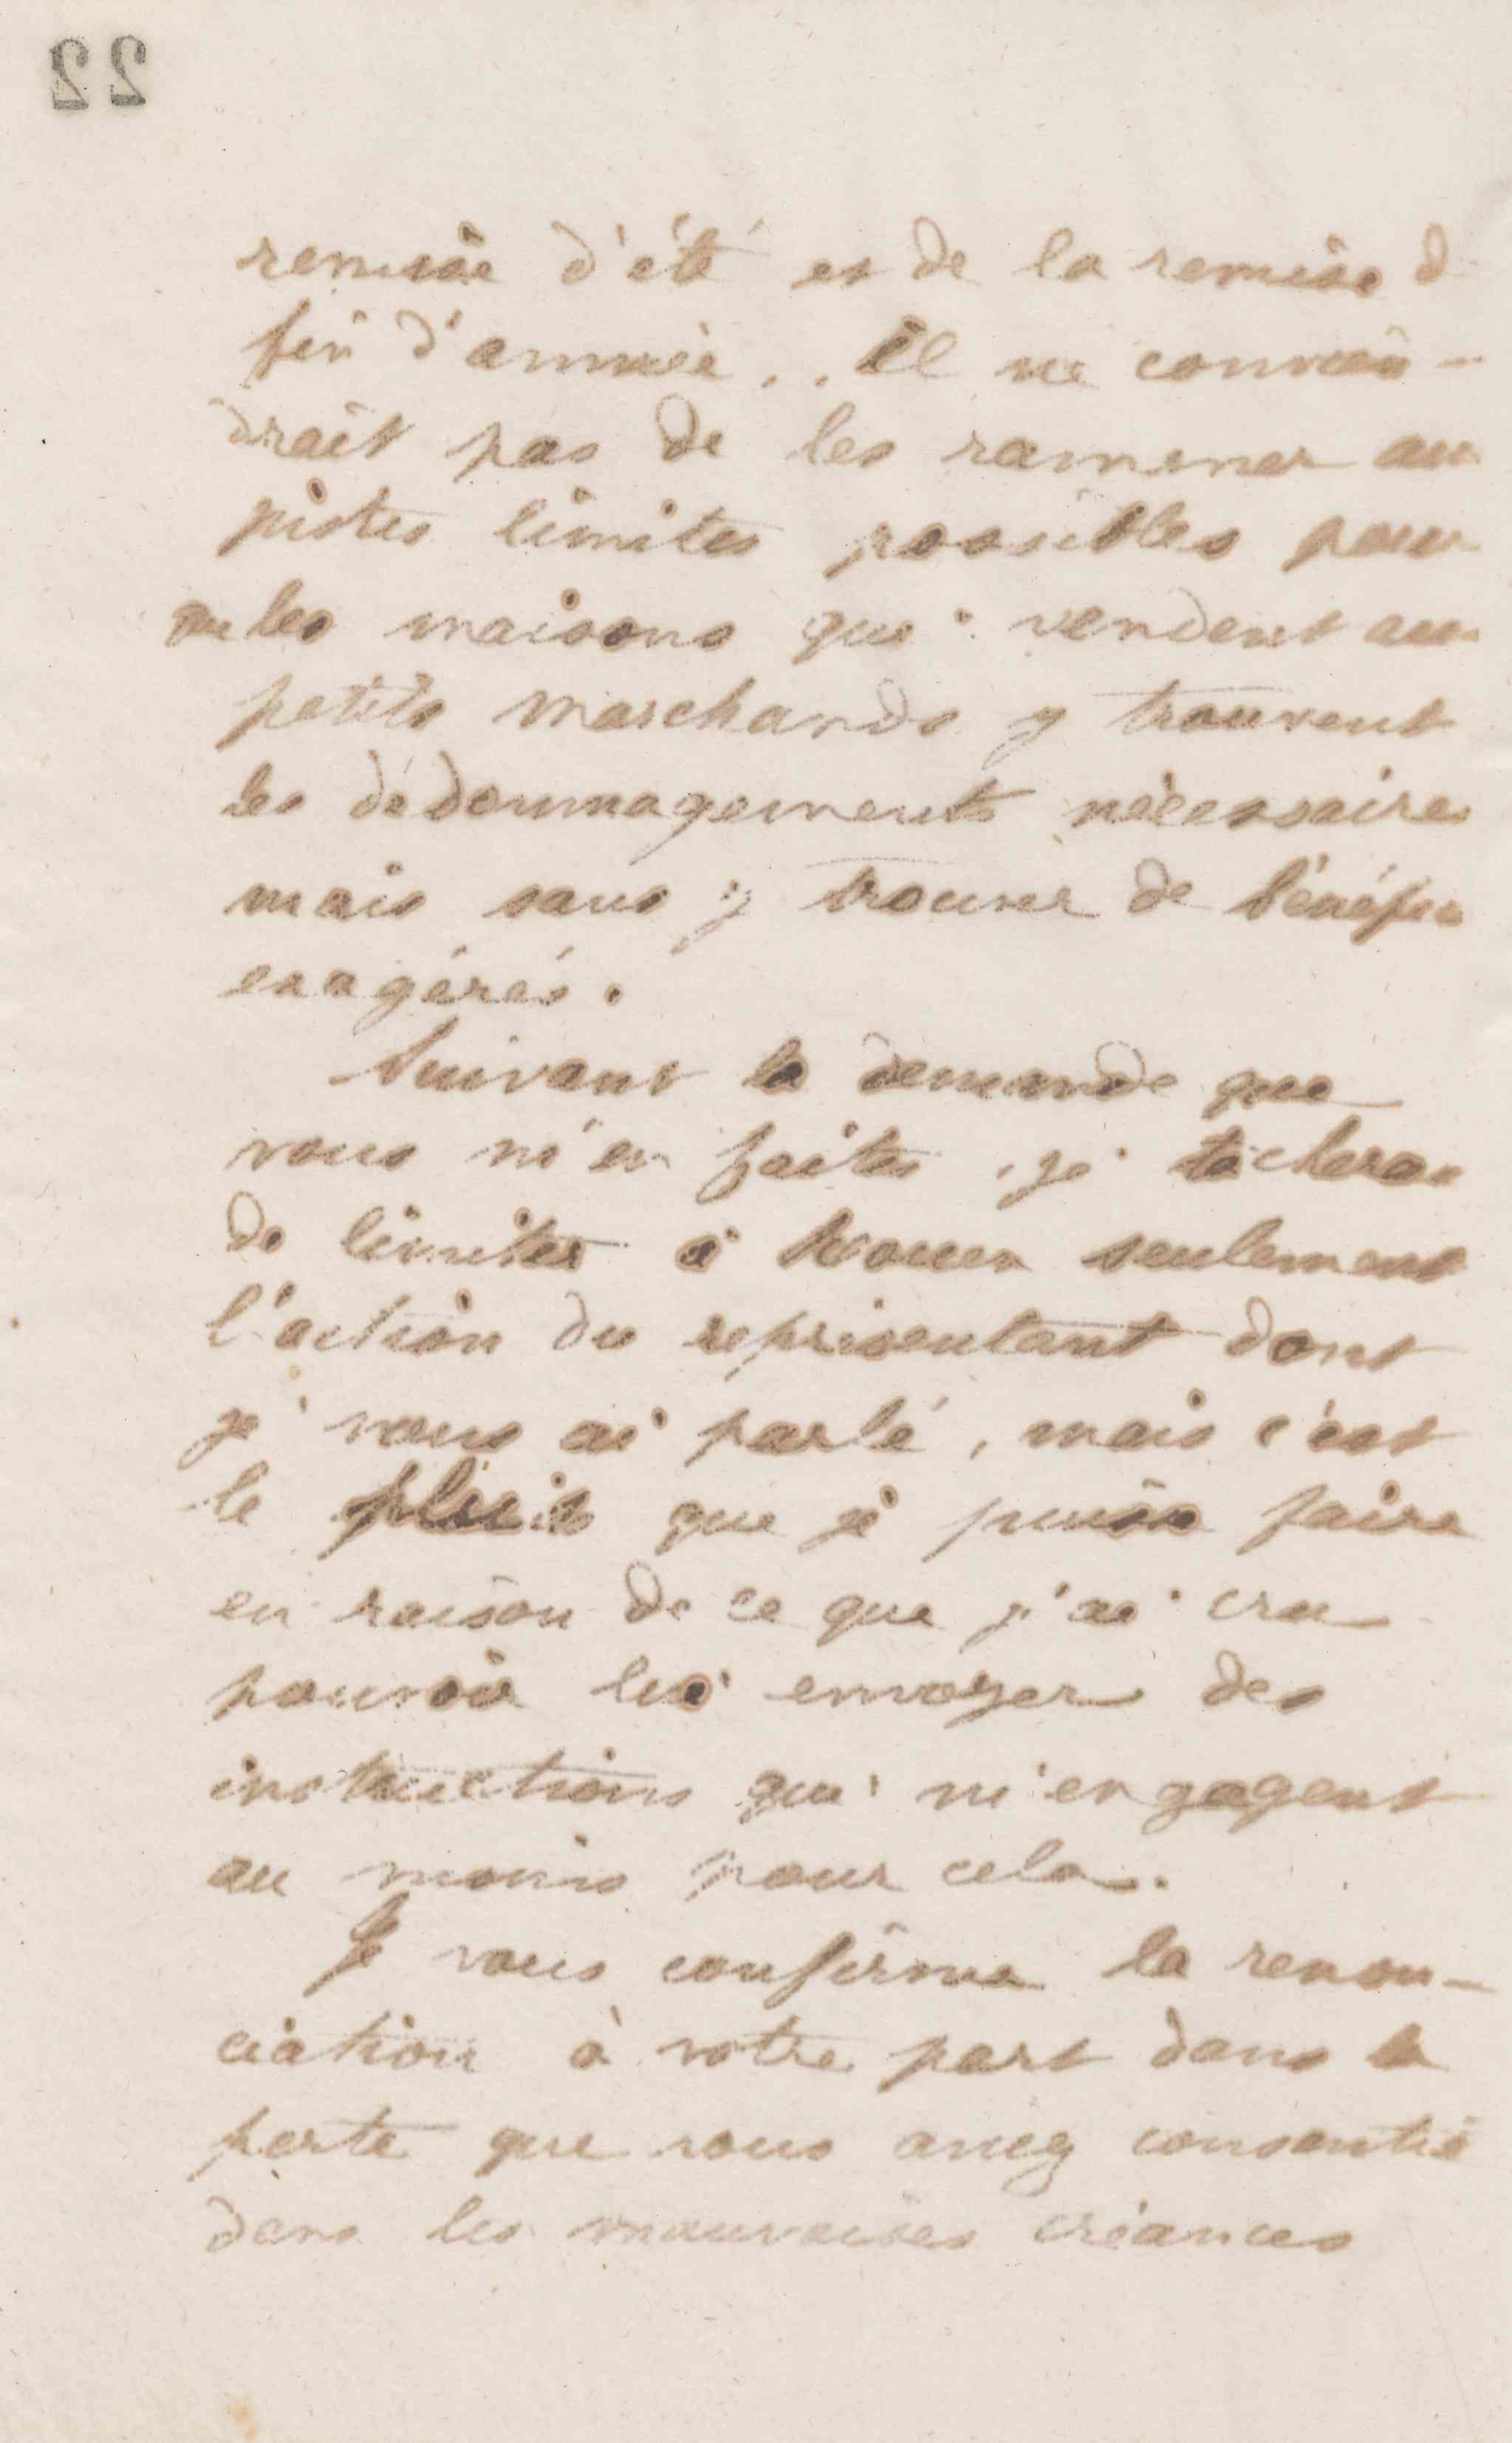 22
remise d'été et de la remise d
fin d'année.. Il ne convien-
drait pas de les ramener au
justes limites possibles pour
que les maisons qui vendent au
petits marchands y trouvent
les dédommagements nécessaires
mais sans y trouver de bénéfices
exagérés.
Suivant la demande que
vous m'en faites, je tâcherai
de limiter à Rouen seulement
l'action du représentant dont
je vous ai parlé, mais c'est
le plus que je puisse faire
en raison de ce que j'ai cru
pouvoir lui envoyer des
instructions qui m'engagent
au moins pour cela.
Je vous confirme la renon-
ciation à votre part dans la
perte que vous avez consentie
dans les mauvaises créances